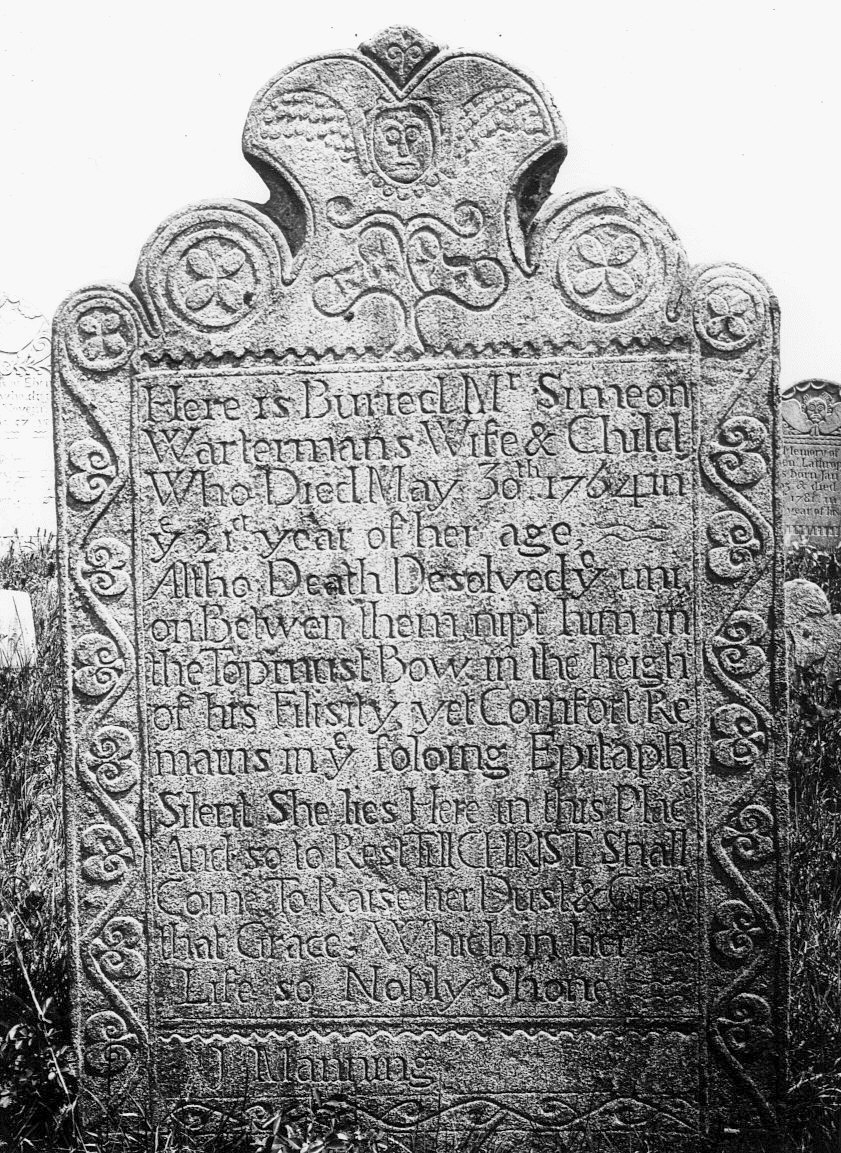 Here is Buried Mr Simeon
Wartermans Wife & Child
Who Died May 30th 1764 in
ye 21st year of her age,
Altho Death Desolved ye uni
on Betwen them nipt him in
the Topmust Bow, in the heigh
of his Filisity, yet Comfort Re
mains in ye foloing Epitaph
Silent She lies Here in this Plac
And so to Rest till CHRIST Shall
Come To Raise her Dust & Crow
that Grace, Which in her
Life so Nobly Shone
J Manning
Memory of
Lathrop
born Jan
died
year of his